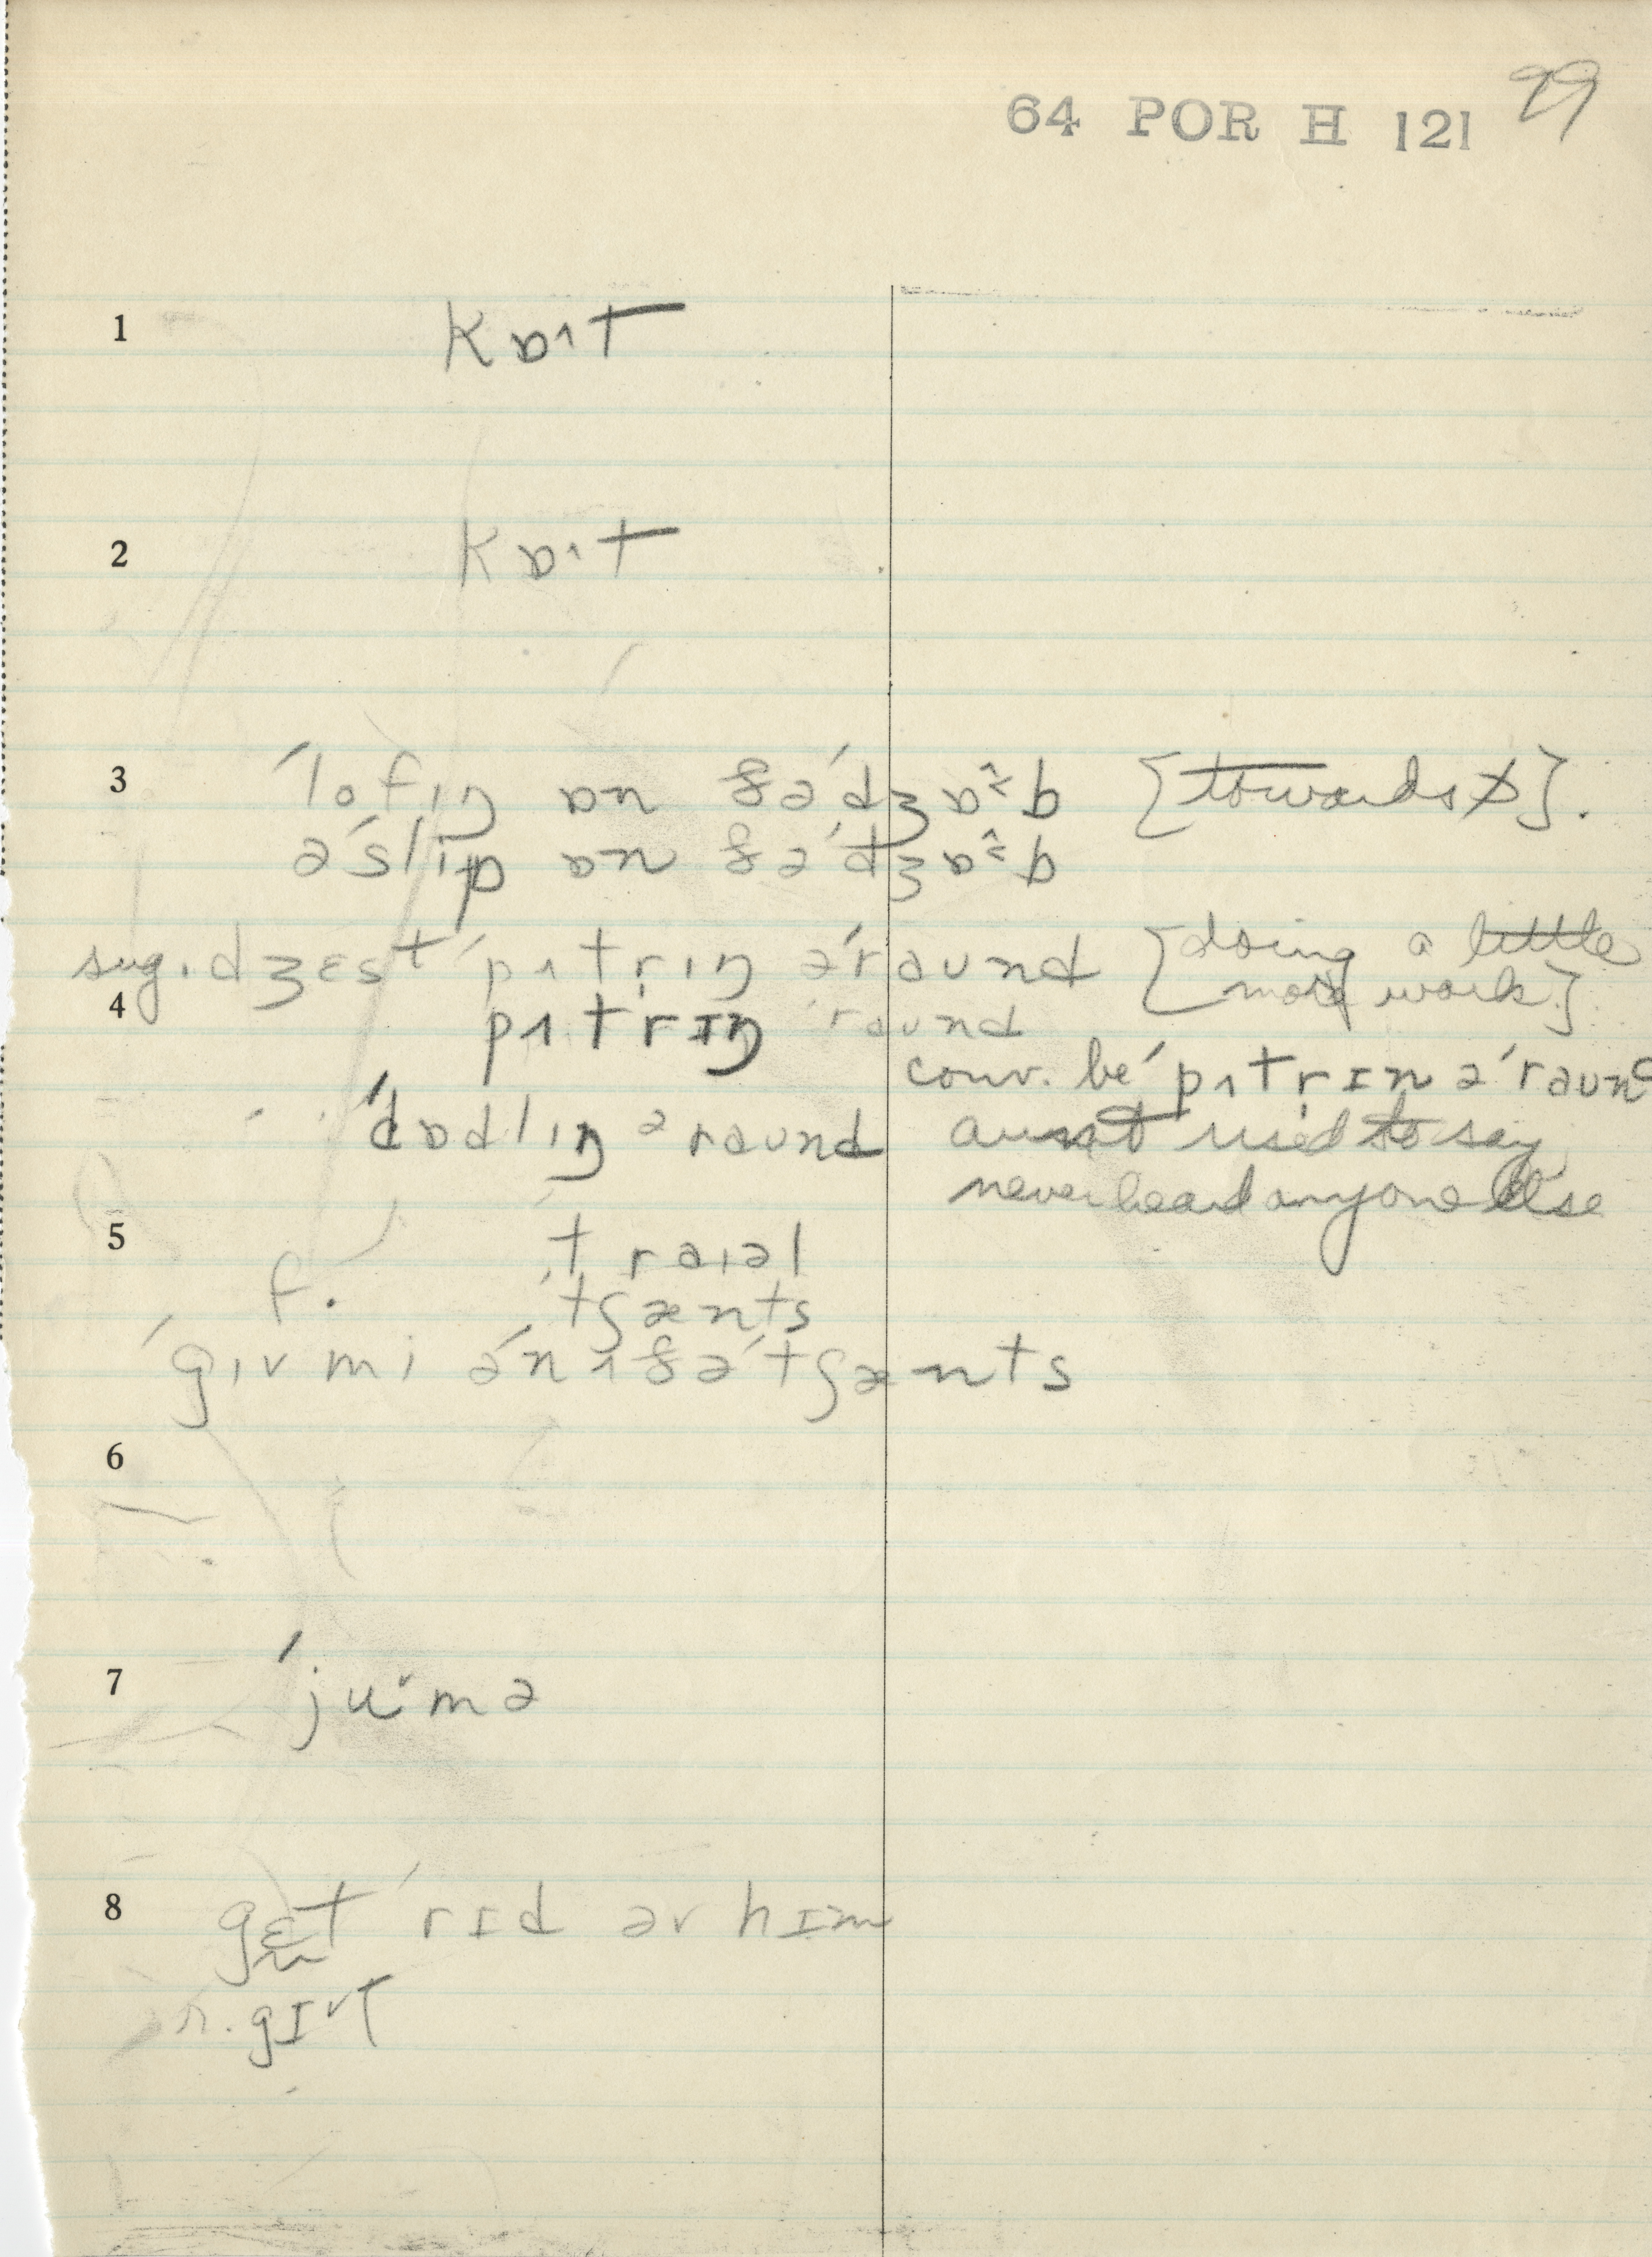 64 POR H 121 99
1 kɒɪt
2 kɒɪt
3 ˈlofɪŋ ɒn ðəˈdʒɒˆb [towards]
əˈslip ɒn ðəˈdʒɒˆb
sug.dʒɛst ˈpʌtrɪŋ əˈraʊnd [doing a little
more work]
4 pʌtrɪŋ ˈraʊnd
conv. be ˈpʌtrɪn əˈraʊnd
ˈdɒdlɪŋ əraʊnd aunt used to say
never heard anyone else
5 ˈtraɪəl
f. ˈtʃænts
ˈgɪv mi ənˈʌðəˈtʃænts
6
7 ˈjuˑmə
8 gɛt ˈrɪd əv hɪm
r. gɪvt